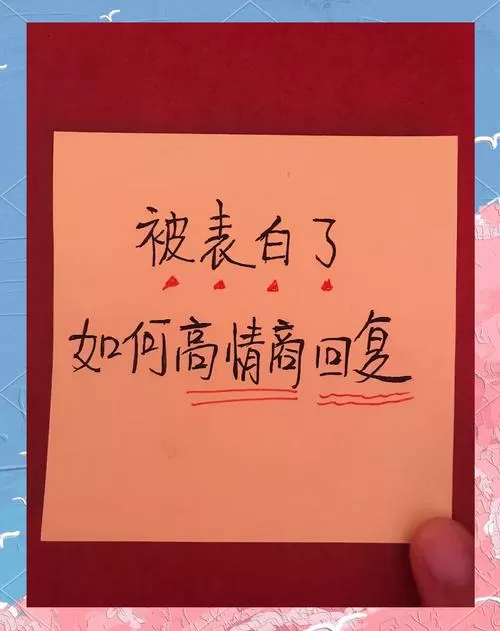 被表白了
如何高情商回复